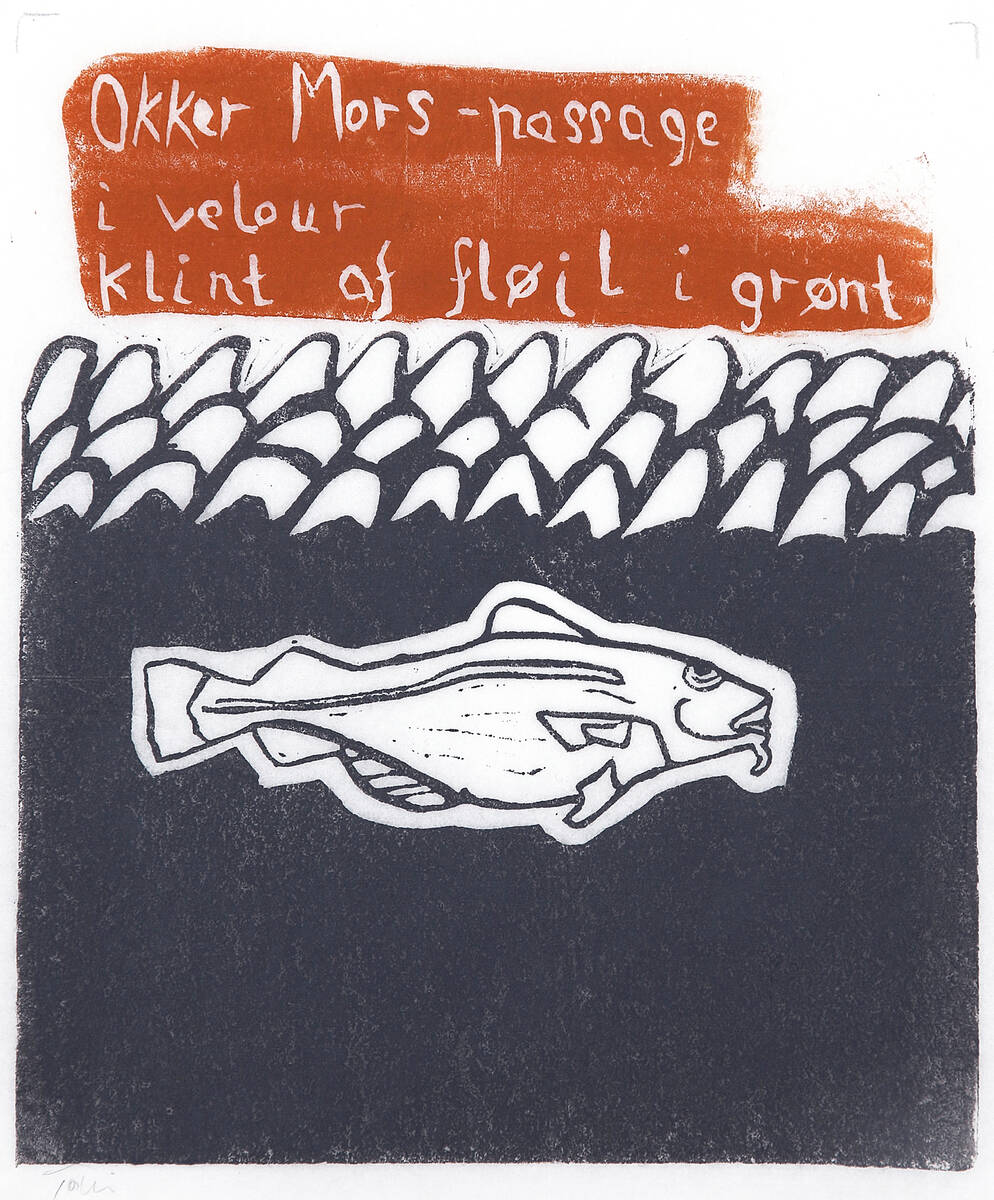 Okker Mors-passage
i velour
klint af fløjl i grønt